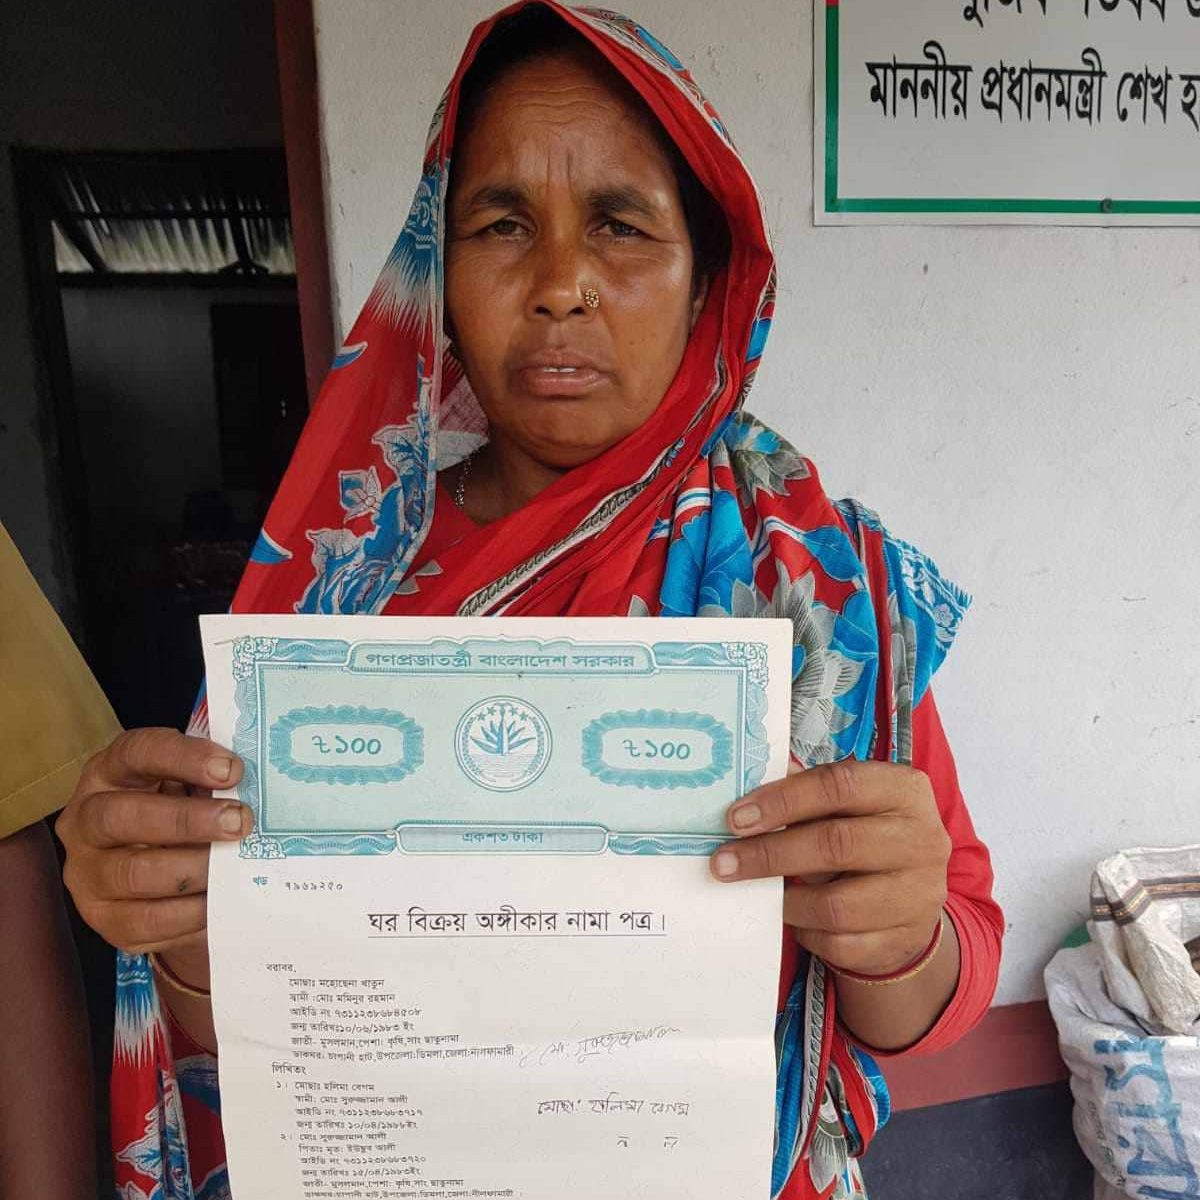 মুজিব শতবর্ষ উ
মাননীয় প্রধানমন্ত্রী শেখ হ
গণপ্রজাতন্ত্রী বাংলাদেশ সরকার
৳১০০
৳১০০
একশত টাকা
খভ ৭৯৬৯২৫০
ঘর বিক্রয় অঙ্গীকার নামা পত্র।
বরাবর,
মোছাঃ মহোছেনা খাতুন
স্বামী :মোঃ মমিনুর রহমান
আইডি নং ৭৩১১২৩৮৬৮৪৫০৮
জন্ম তারিখঃ১০/০৬/১৯৮৩ ইং
জাতী- মুসলমান,পেশা: কৃষি,সাং ছাতুনামা
ডাকঘর: চাপানী হাট,উপজেলা:ডিমলা,জেলা:নীলফামারী
লিখিতং
মো: সুরুজ্জামান
১। মোছাঃ হালিমা বেগম
স্বামী: মোঃ সুরুজ্জামান আলী
আইডি নং ৭৩১১২৩৮৬৮৩৭১৭
জন্ম তারিখঃ ১০/০৪/১৯৮৮ইং
মোছা: হালিমা বেগম
২। মোঃ সুরুজ্জামান আলী
পিতাঃ মৃত: ইউছুব আলী
আইডি নং ৭৩১১২৩৮৬৮৩৭২০
জন্ম তারিখঃ ১৫/০৪/১৯৮৩ইং
জাতী- মুসলমান,পেশা: কৃষি,সাং ছাতুনামা
ডাকঘর:চাপানী হাট,উপজেলা:ডিমলা,জেলা:নীলফামারী ।